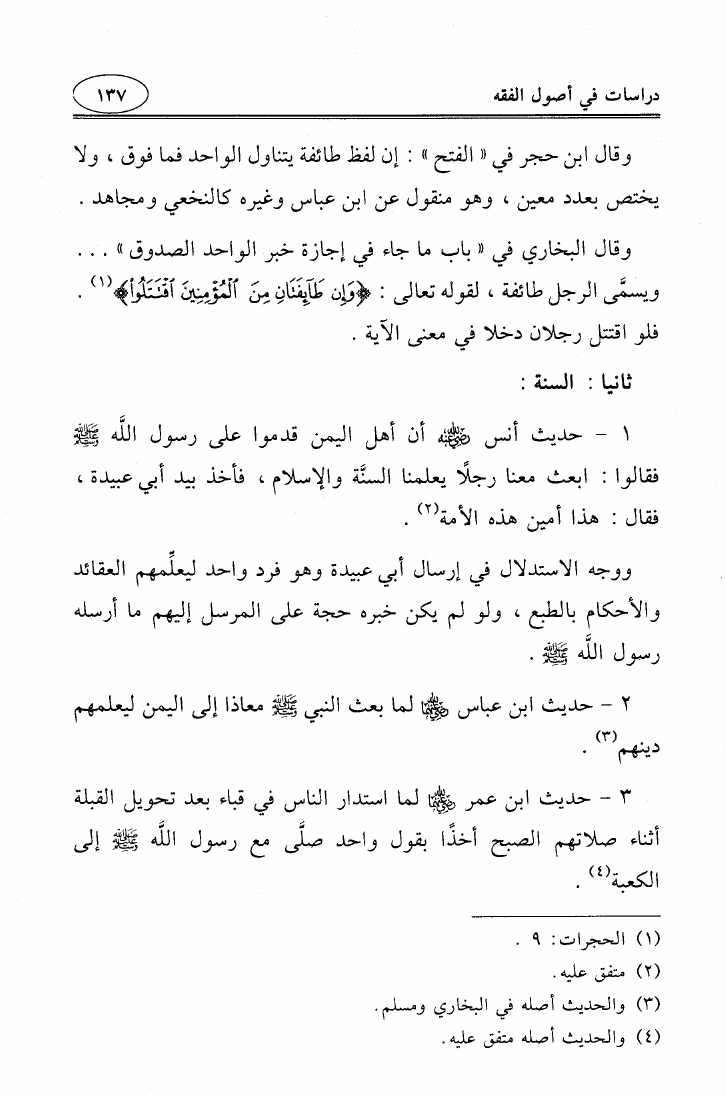 دراسات في أصول الفقه
١٣٧
وقال ابن حجر في « الفتح » : إن لفظ طائفة يتناول الواحد فما فوق ، ولا
يختص بعدد معين ، وهو منقول عن ابن عباس وغيره كالنخعي ومجاهد .
وقال البخاري في « باب ما جاء في إجازة خبر الواحد الصدوق » . . .
ويسمَّى الرجل طائفة ، لقوله تعالى : ﴿وَإِن طَآئِفَتَانِ مِنَ ٱلْمُؤْمِنِينَ ٱقْتَتَلُوا۟﴾(١) .
فلو اقتتل رجلان دخلا في معنى الآية .
ثانيا : السنة :
١ - حديث أنس رضي الله عنه أن أهل اليمن قدموا على رسول اللَّه ﷺ
فقالوا : ابعث معنا رجلًا يعلمنا السنَّة والإسلام ، فأخذ بيد أبي عبيدة ،
فقال : هذا أمين هذه الأمة(٢) .
ووجه الاستدلال في إرسال أبي عبيدة وهو فرد واحد ليعلِّمهم العقائد
والأحكام بالطبع ، ولو لم يكن خبره حجة على المرسل إليهم ما أرسله
رسول اللَّه ﷺ .
٢ - حديث ابن عباس رضي الله عنهما لما بعث النبي ﷺ معاذا إلى اليمن ليعلمهم
دينهم(٣) .
٣ - حديث ابن عمر رضي الله عنهما لما استدار الناس في قباء بعد تحويل القبلة
أثناء صلاتهم الصبح أخذًا بقول واحد صلَّى مع رسول اللَّه ﷺ إلى
الكعبة(٤) .
(١) الحجرات: ٩ .
(٢) متفق عليه.
(٣) والحديث أصله في البخاري ومسلم.
(٤) والحديث أصله متفق عليه.